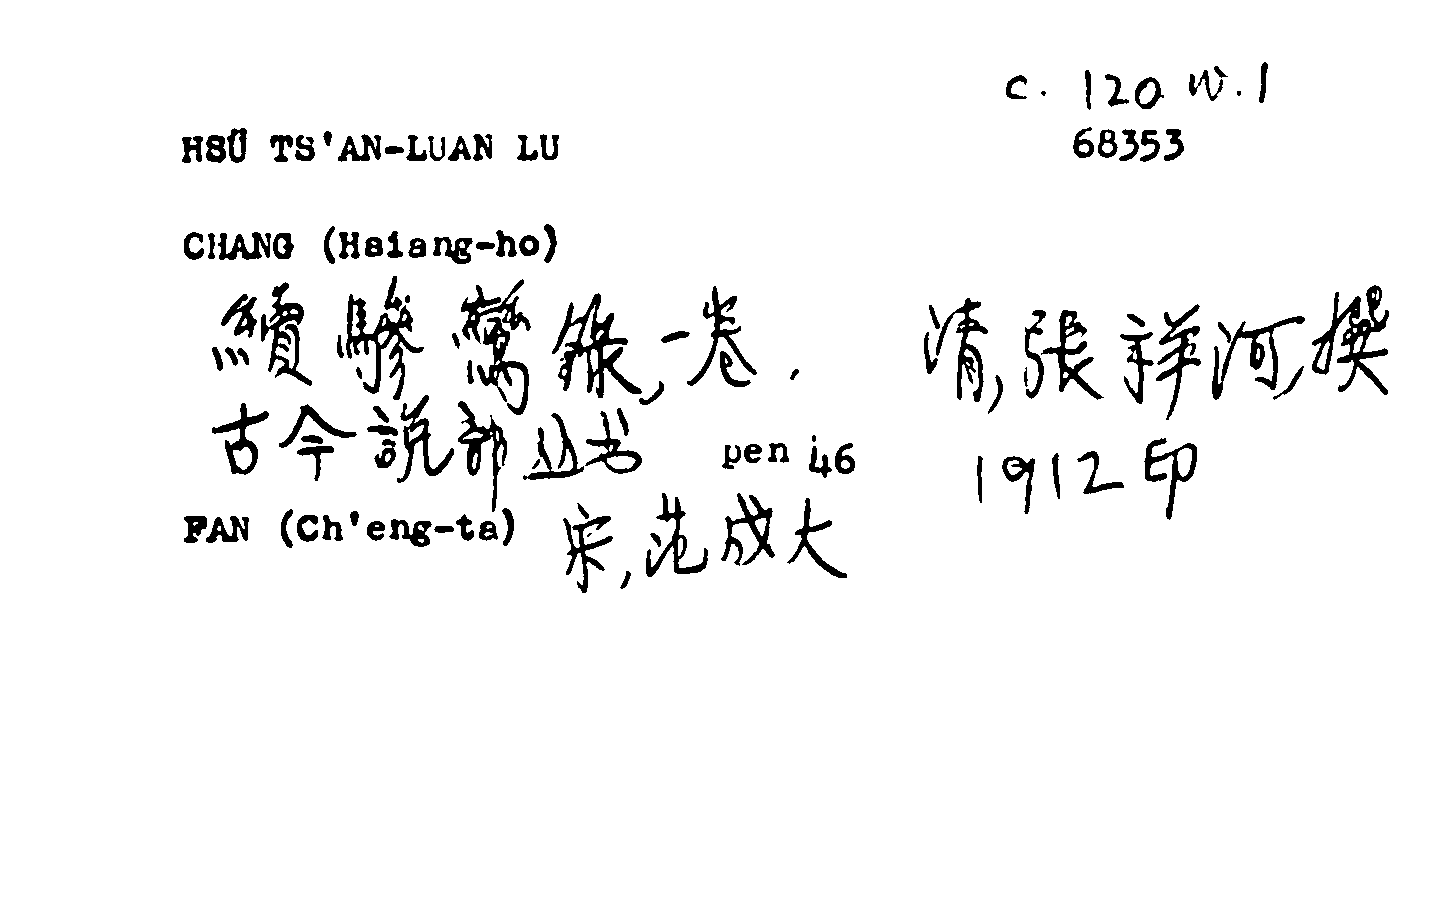 c. 120 w. 1
HSÜ TS'AN-LUAN LU
68353
CHANG (Hsiang-ho)
續驂鸞錄,一卷. 清,張祥河撰
古今說部丛书 pen 46 1912印
FAN (Ch'eng-ta) 宋,范成大